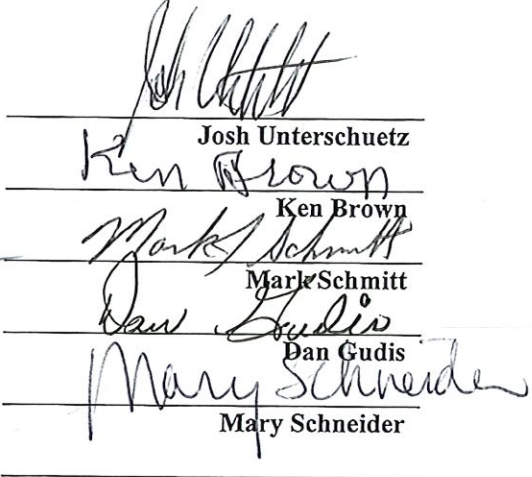 Josh Unterschuetz
Ken Brown
Ken Brown
Mark J Schmitt
Mark Schmitt
Dan Gudis
Dan Gudis
Mary Schneider
Mary Schneider